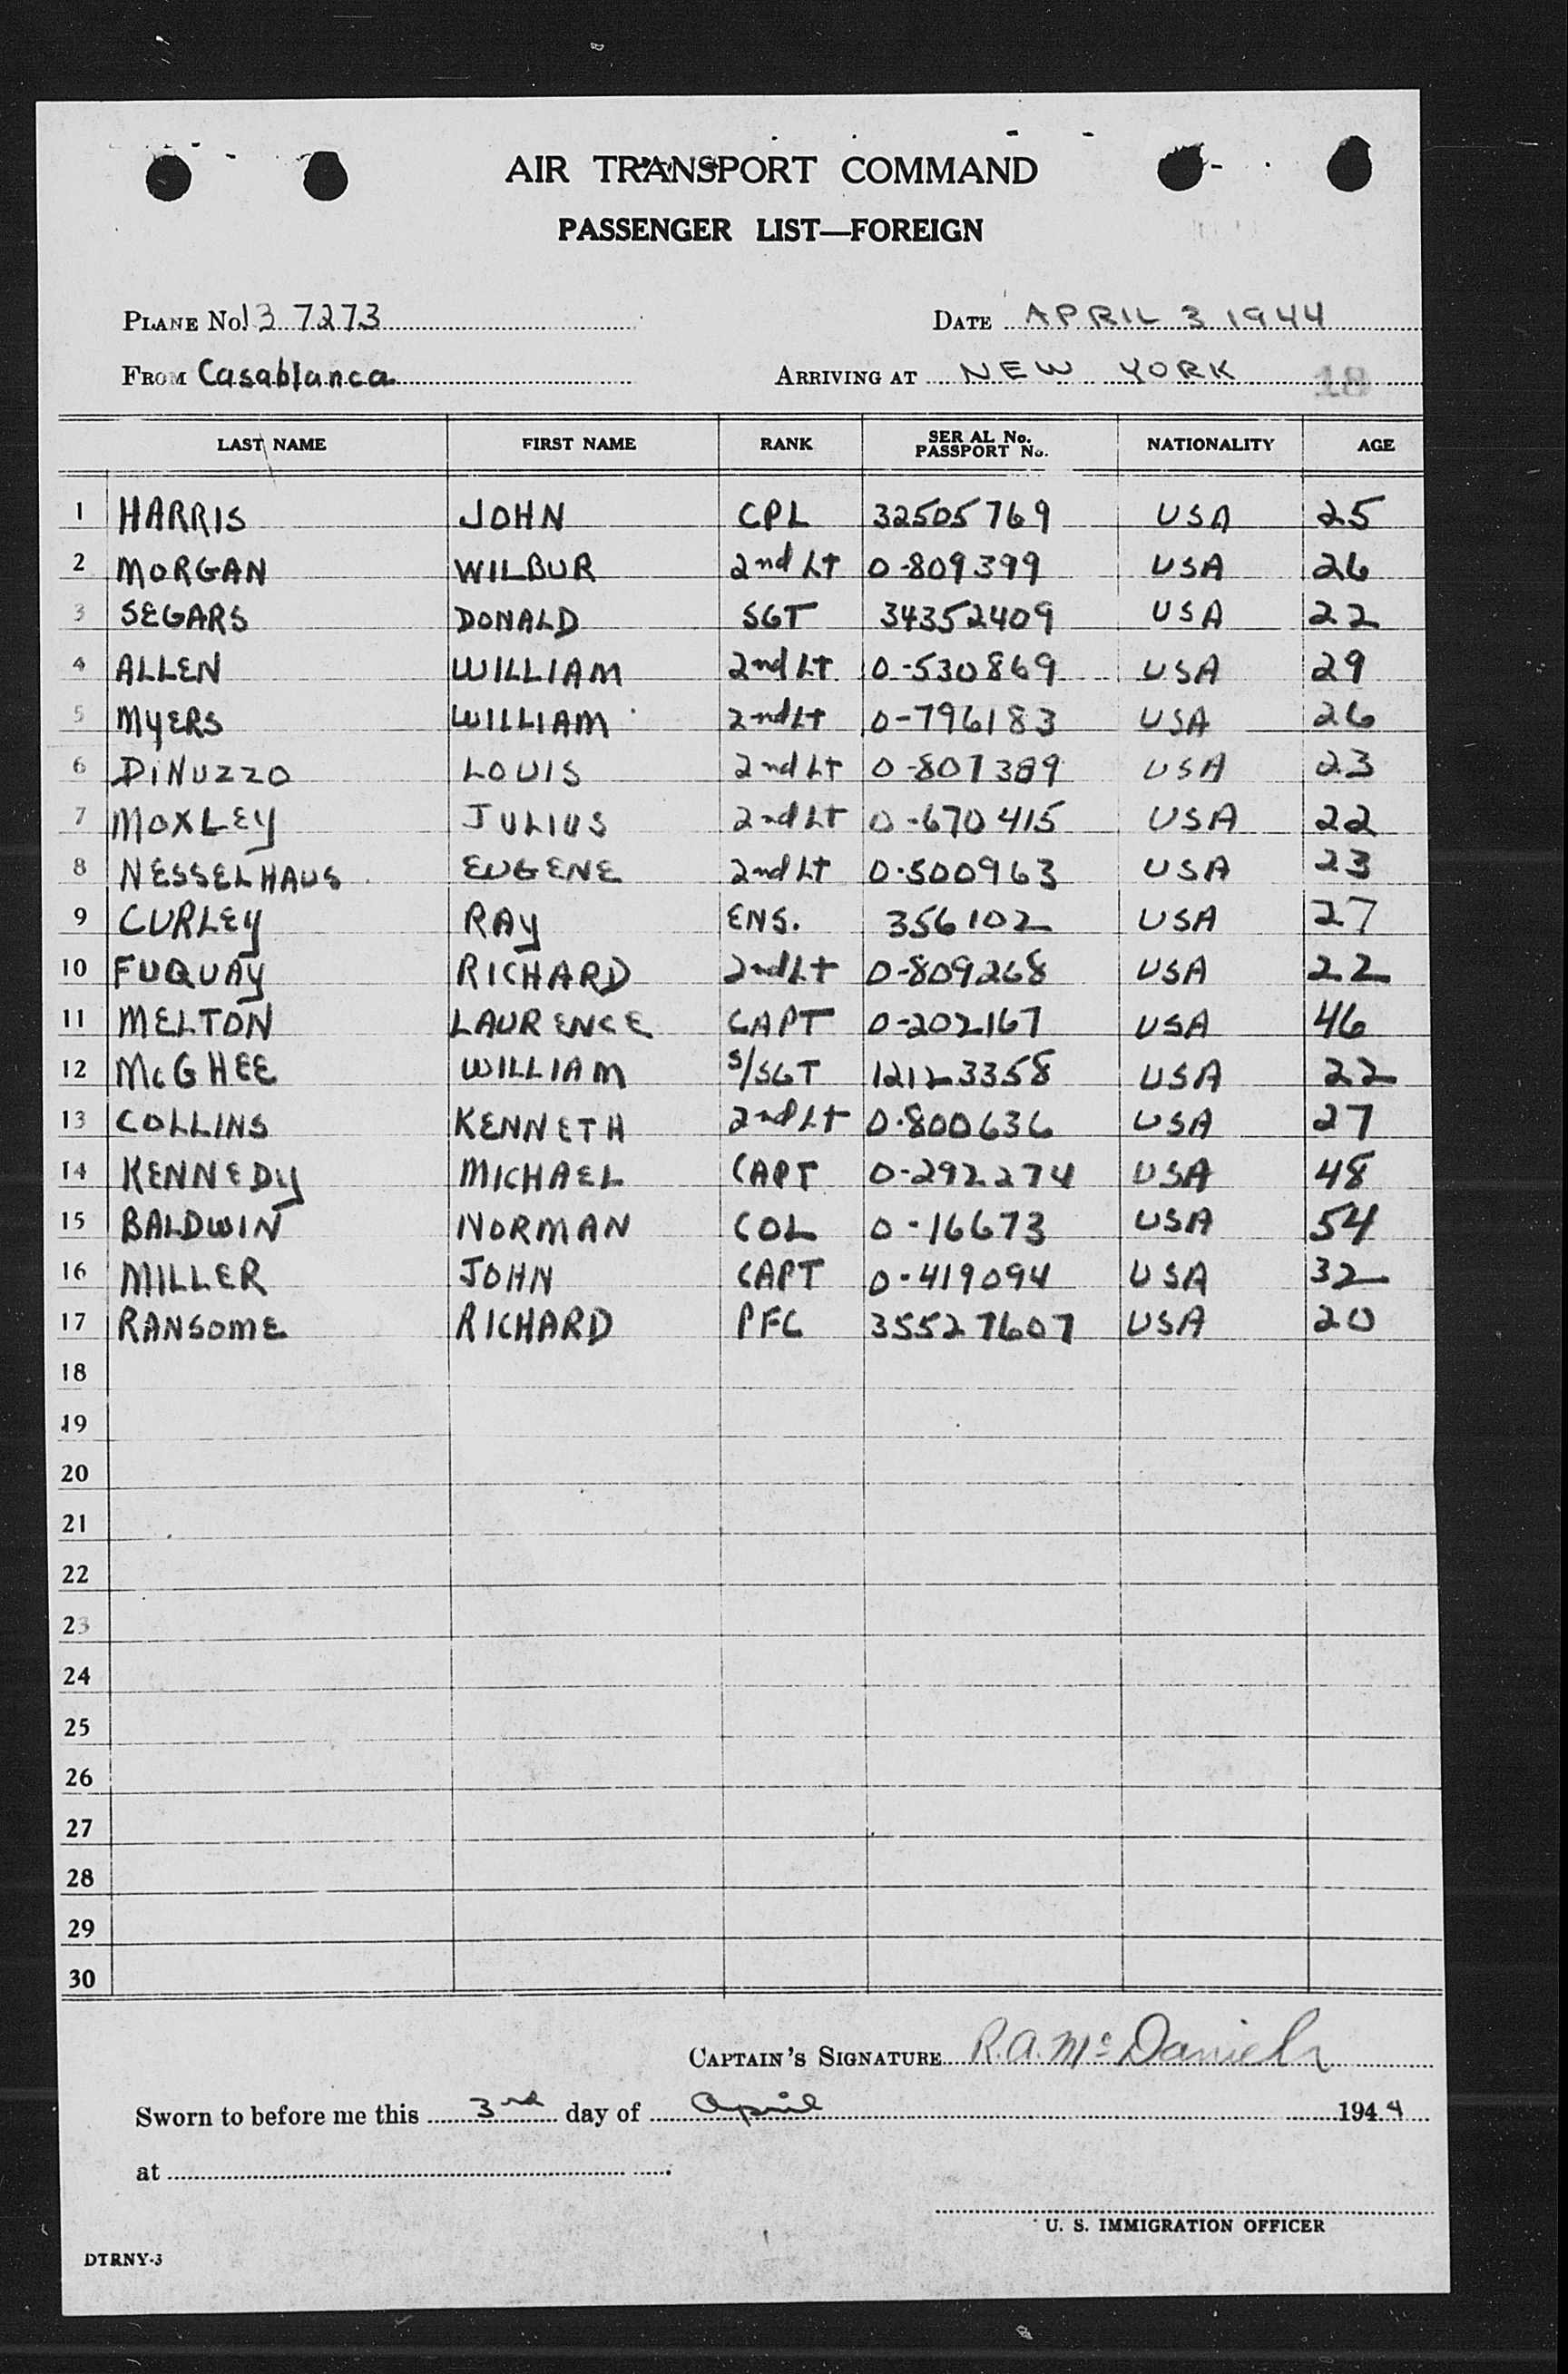 AIR TRANSPORT COMMAND
PASSENGER LIST—FOREIGN
PLANE No. 13 7273 DATE APRIL 3 1944
FROM Casablanca ARRIVING AT NEW YORK 18
LAST NAME FIRST NAME RANK SER AL No. PASSPORT No. NATIONALITY AGE
1 HARRIS JOHN CPL 32505769 USA 25
2 MORGAN WILBUR 2nd Lt 0-809399 USA 26
3 SEGARS DONALD SGT 34352409 USA 22
4 ALLEN WILLIAM 2nd Lt 0-530869 USA 29
5 MYERS WILLIAM 2nd Lt 0-796183 USA 26
6 DiNUZZO LOUIS 2nd Lt 0-807389 USA 23
7 MOXLEY JULIUS 2nd Lt 0-670415 USA 22
8 NESSELHAUS EUGENE 2nd Lt 0-500963 USA 23
9 CURLEY RAY ENS. 356102 USA 27
10 FUQUAY RICHARD 2nd Lt 0-809268 USA 22
11 MELTON LAURENCE CAPT 0-202167 USA 46
12 McGHEE WILLIAM S/SGT 12123358 USA 22
13 COLLINS KENNETH 2nd Lt 0-800636 USA 27
14 KENNEDY MICHAEL CAPT 0-292274 USA 48
15 BALDWIN NORMAN COL 0-16673 USA 54
16 MILLER JOHN CAPT 0-419094 USA 32
17 RANSOME RICHARD PFC 35527607 USA 20
18
19
20
21
22
23
24
25
26
27
28
29
30
CAPTAIN'S SIGNATURE R.A. McDaniels
Sworn to before me this 3rd day of April 1944
at
U. S. IMMIGRATION OFFICER
DTRNY-3